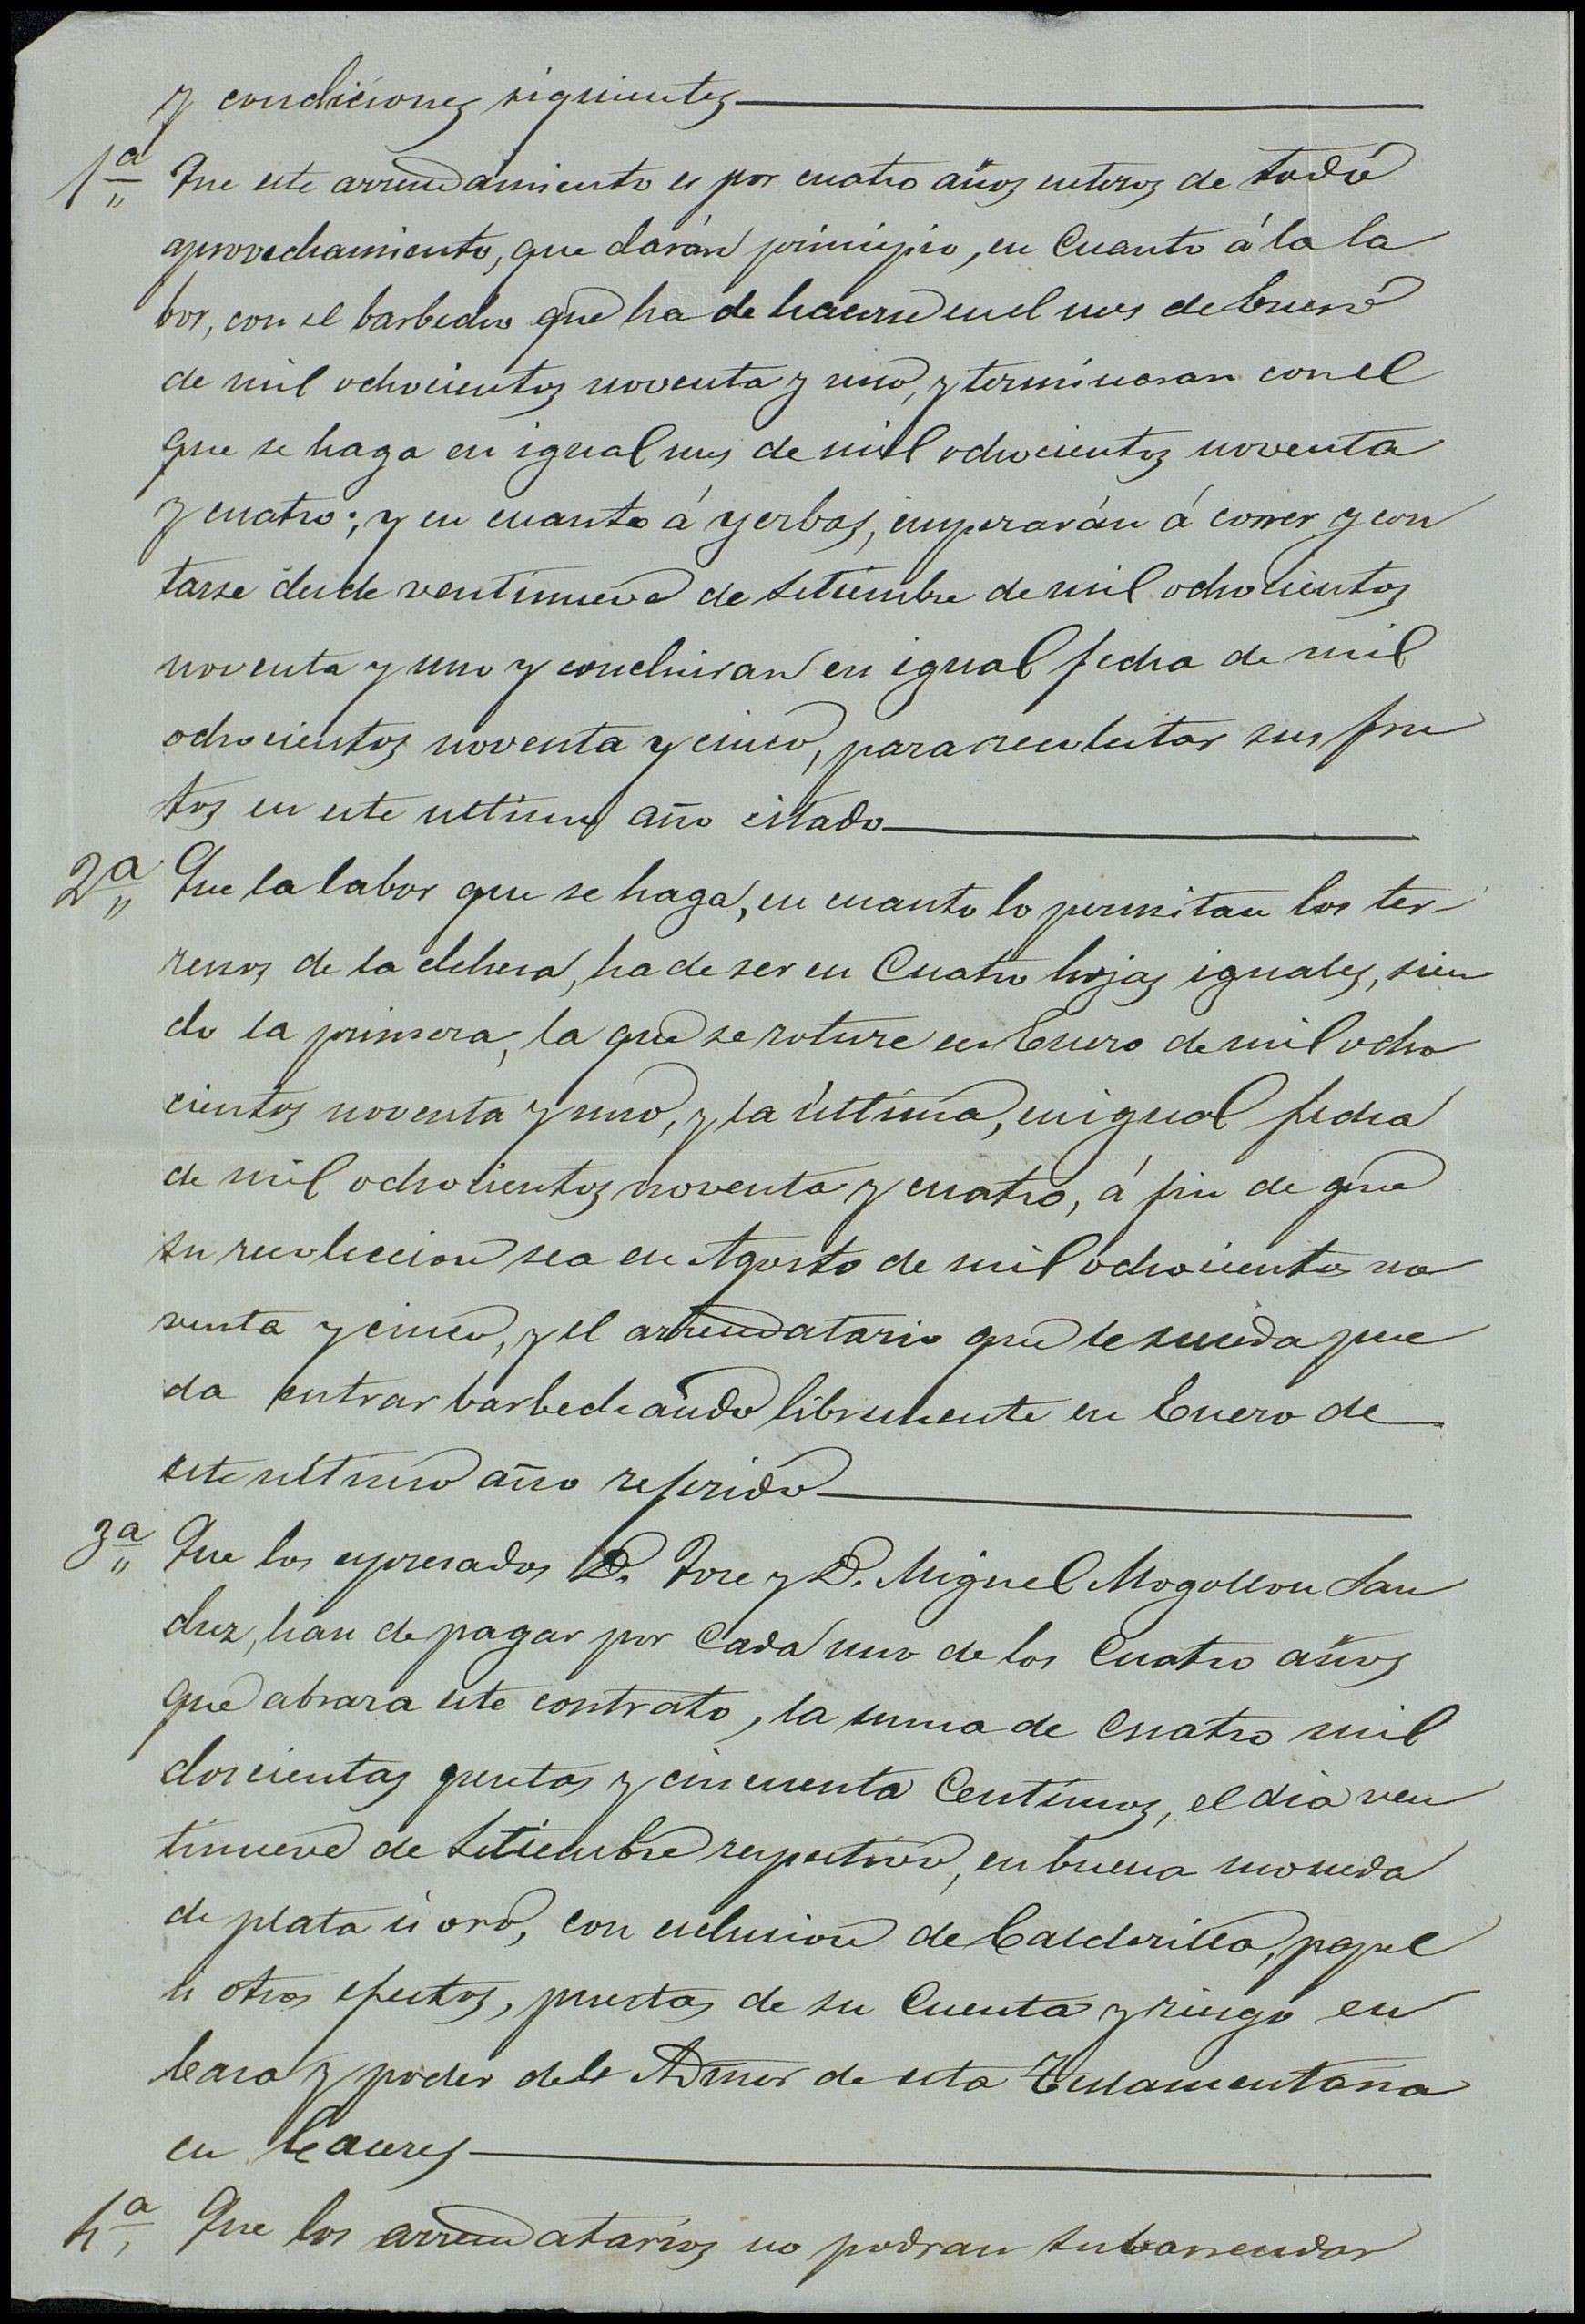 y condiciones siguientes
1ª Que este arrendamiento es por cuatro años enteros de todo
aprovechamiento, que darán principio, en cuanto á la la
bor, con el barbecho que ha de hacerse en el mes de Enero
de mil ochocientos noventa y uno, y terminaran con el
que se haga en igual mes de mil ochocientos noventa
y cuatro; y en cuanto á yerbas, empezarán á correr y con
tarse desde ventinueve de Setiembre de mil ochocientos
noventa y uno y concluiran en igual fecha de mil
ochocientos noventa y cinco, para recolectar sus fru
tos en este ultimo año citado
2ª Que la labor que se haga, en cuanto lo permitan los ter-
renos de la dehesa, ha de ser en Cuatro hojas iguales, sien
do la primera, la que se roture en Enero de mil ocho
cientos noventa y uno, y la última, en igual fecha
de mil ochocientos noventa y cuatro, á fin de que
su recoleccion sea en Agosto de mil ochocientos no
venta y cinco, y el arrendatario que le suceda pue
da entrar barbechando libremente en Enero de
este ultimo año referido
3ª Que los expresados D. Jose y D. Miguel Mogollon San
chez, han de pagar por cada uno de los cuatro años
que abraza este contrato, la suma de cuatro mil
doscientas pesetas y cincuenta Centimos, el dia ven
tinueve de Setiembre respectivo, en buena moneda
de plata ú oro, con exclusion de Calderilla, papel
ú otros efectos, puestas de su Cuenta y riesgo en
Casa y poder del Admor de esta Testamentaria
en Caceres
4ª Que los arrendatarios no podran subarrendar